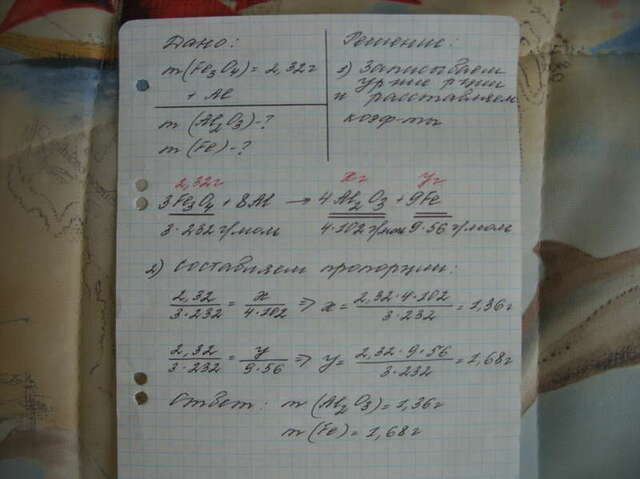 Дано:
m(Fe3O4) = 2,32г
+ Al
m(Al2O3)-?
m(Fe)-?
Решение:
1) Записываем
ур-ние р-ции
и расставляем
коэф-ты
2,32г xг yг
3Fe3O4 + 8Al → 4Al2O3 + 9Fe
3·232 г/моль 4·102 г/моль 9·56 г/моль
2) Составляем пропорции:
2,32/3·232 = x/4·102 => x = 2,32·4·102/3·232 = 1,36г
2,32/3·232 = y/9·56 => y = 2,32·9·56/3·232 = 1,68г
Ответ: m(Al2O3) = 1,36г
m(Fe) = 1,68г